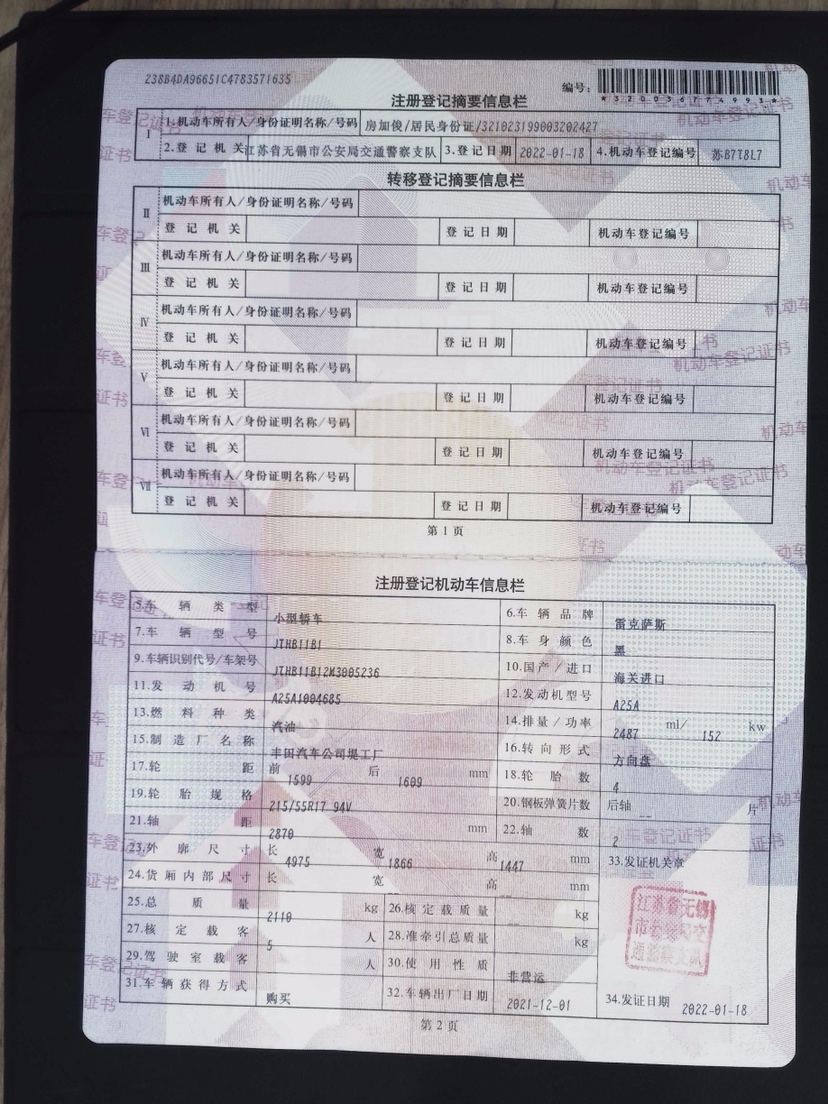 238B4DA96651C4783571635
编号:
*320036774993*
注册登记摘要信息栏
Ⅰ 1.机动车所有人/身份证明名称/号码 房加俊/居民身份证/321023199003202427
2.登记机关 江苏省无锡市公安局交通警察支队 3.登记日期 2022-01-18 4.机动车登记编号 苏B7T8L7
转移登记摘要信息栏
Ⅱ 机动车所有人/身份证明名称/号码
登记机关 登记日期 机动车登记编号
Ⅲ 机动车所有人/身份证明名称/号码
登记机关 登记日期 机动车登记编号
Ⅳ 机动车所有人/身份证明名称/号码
登记机关 登记日期 机动车登记编号
Ⅴ 机动车所有人/身份证明名称/号码
登记机关 登记日期 机动车登记编号
Ⅵ 机动车所有人/身份证明名称/号码
登记机关 登记日期 机动车登记编号
Ⅶ 机动车所有人/身份证明名称/号码
登记机关 登记日期 机动车登记编号
第1页
注册登记机动车信息栏
5.车辆类型 小型轿车 6.车辆品牌 雷克萨斯
7.车辆型号 JTHB11B1 8.车身颜色 黑
9.车辆识别代号/车架号 JTHB11B12M3005236 10.国产/进口 海关进口
11.发动机号 A25A1004685 12.发动机型号 A25A
13.燃料种类 汽油 14.排量/功率 2487 ml/ 152 kw
15.制造厂名称 丰田汽车公司堤工厂 16.转向形式 方向盘
17.轮距 前 1599 后 1609 mm 18.轮胎数 4
19.轮胎规格 215/55R17 94V 20.钢板弹簧片数 后轴 -- 片
21.轴距 2870 mm 22.轴数 2
23.外廓尺寸 长 4975 宽 1866 高 1447 mm 33.发证机关章
24.货厢内部尺寸 长 宽 -- 高 -- mm
25.总质量 2110 kg 26.核定载质量 -- kg
27.核定载客 5 人 28.准牵引总质量 -- kg
江苏省无锡市公安局交通警察支队
29.驾驶室载客 人 30.使用性质 非营运
31.车辆获得方式 购买 32.车辆出厂日期 2021-12-01 34.发证日期 2022-01-18
第2页